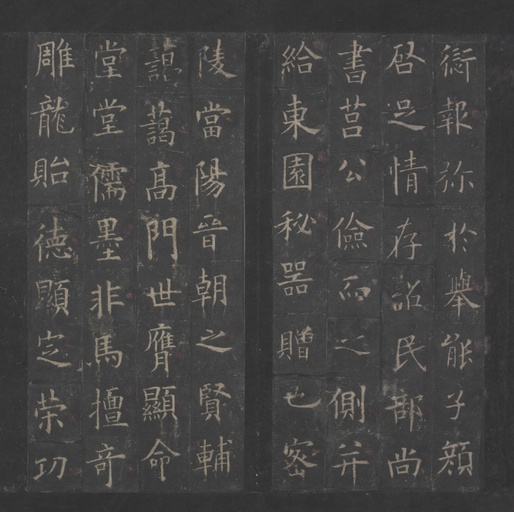 衍報称於舉能子顏
啓足情存詔民部尚
書莒公儉而之側并
給東園秘器贈也密
陵當陽晉朝之賢輔
謁藹高門世膺顯命
堂堂儒墨非馬擅奇
雕龍貽德顯定荣功